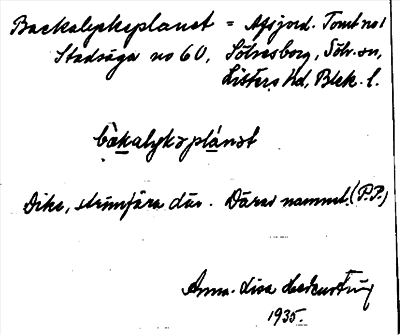 Backalyckeplanet = Afsjord. Tomt no 1
Stadsäga no 60, Sölvesborg, Sölv. sn,
Listers hd, Blek. l.
bakalykəplánət
Dike, där. Därav namnet. (P.P.)
Anna-Lisa
1935.